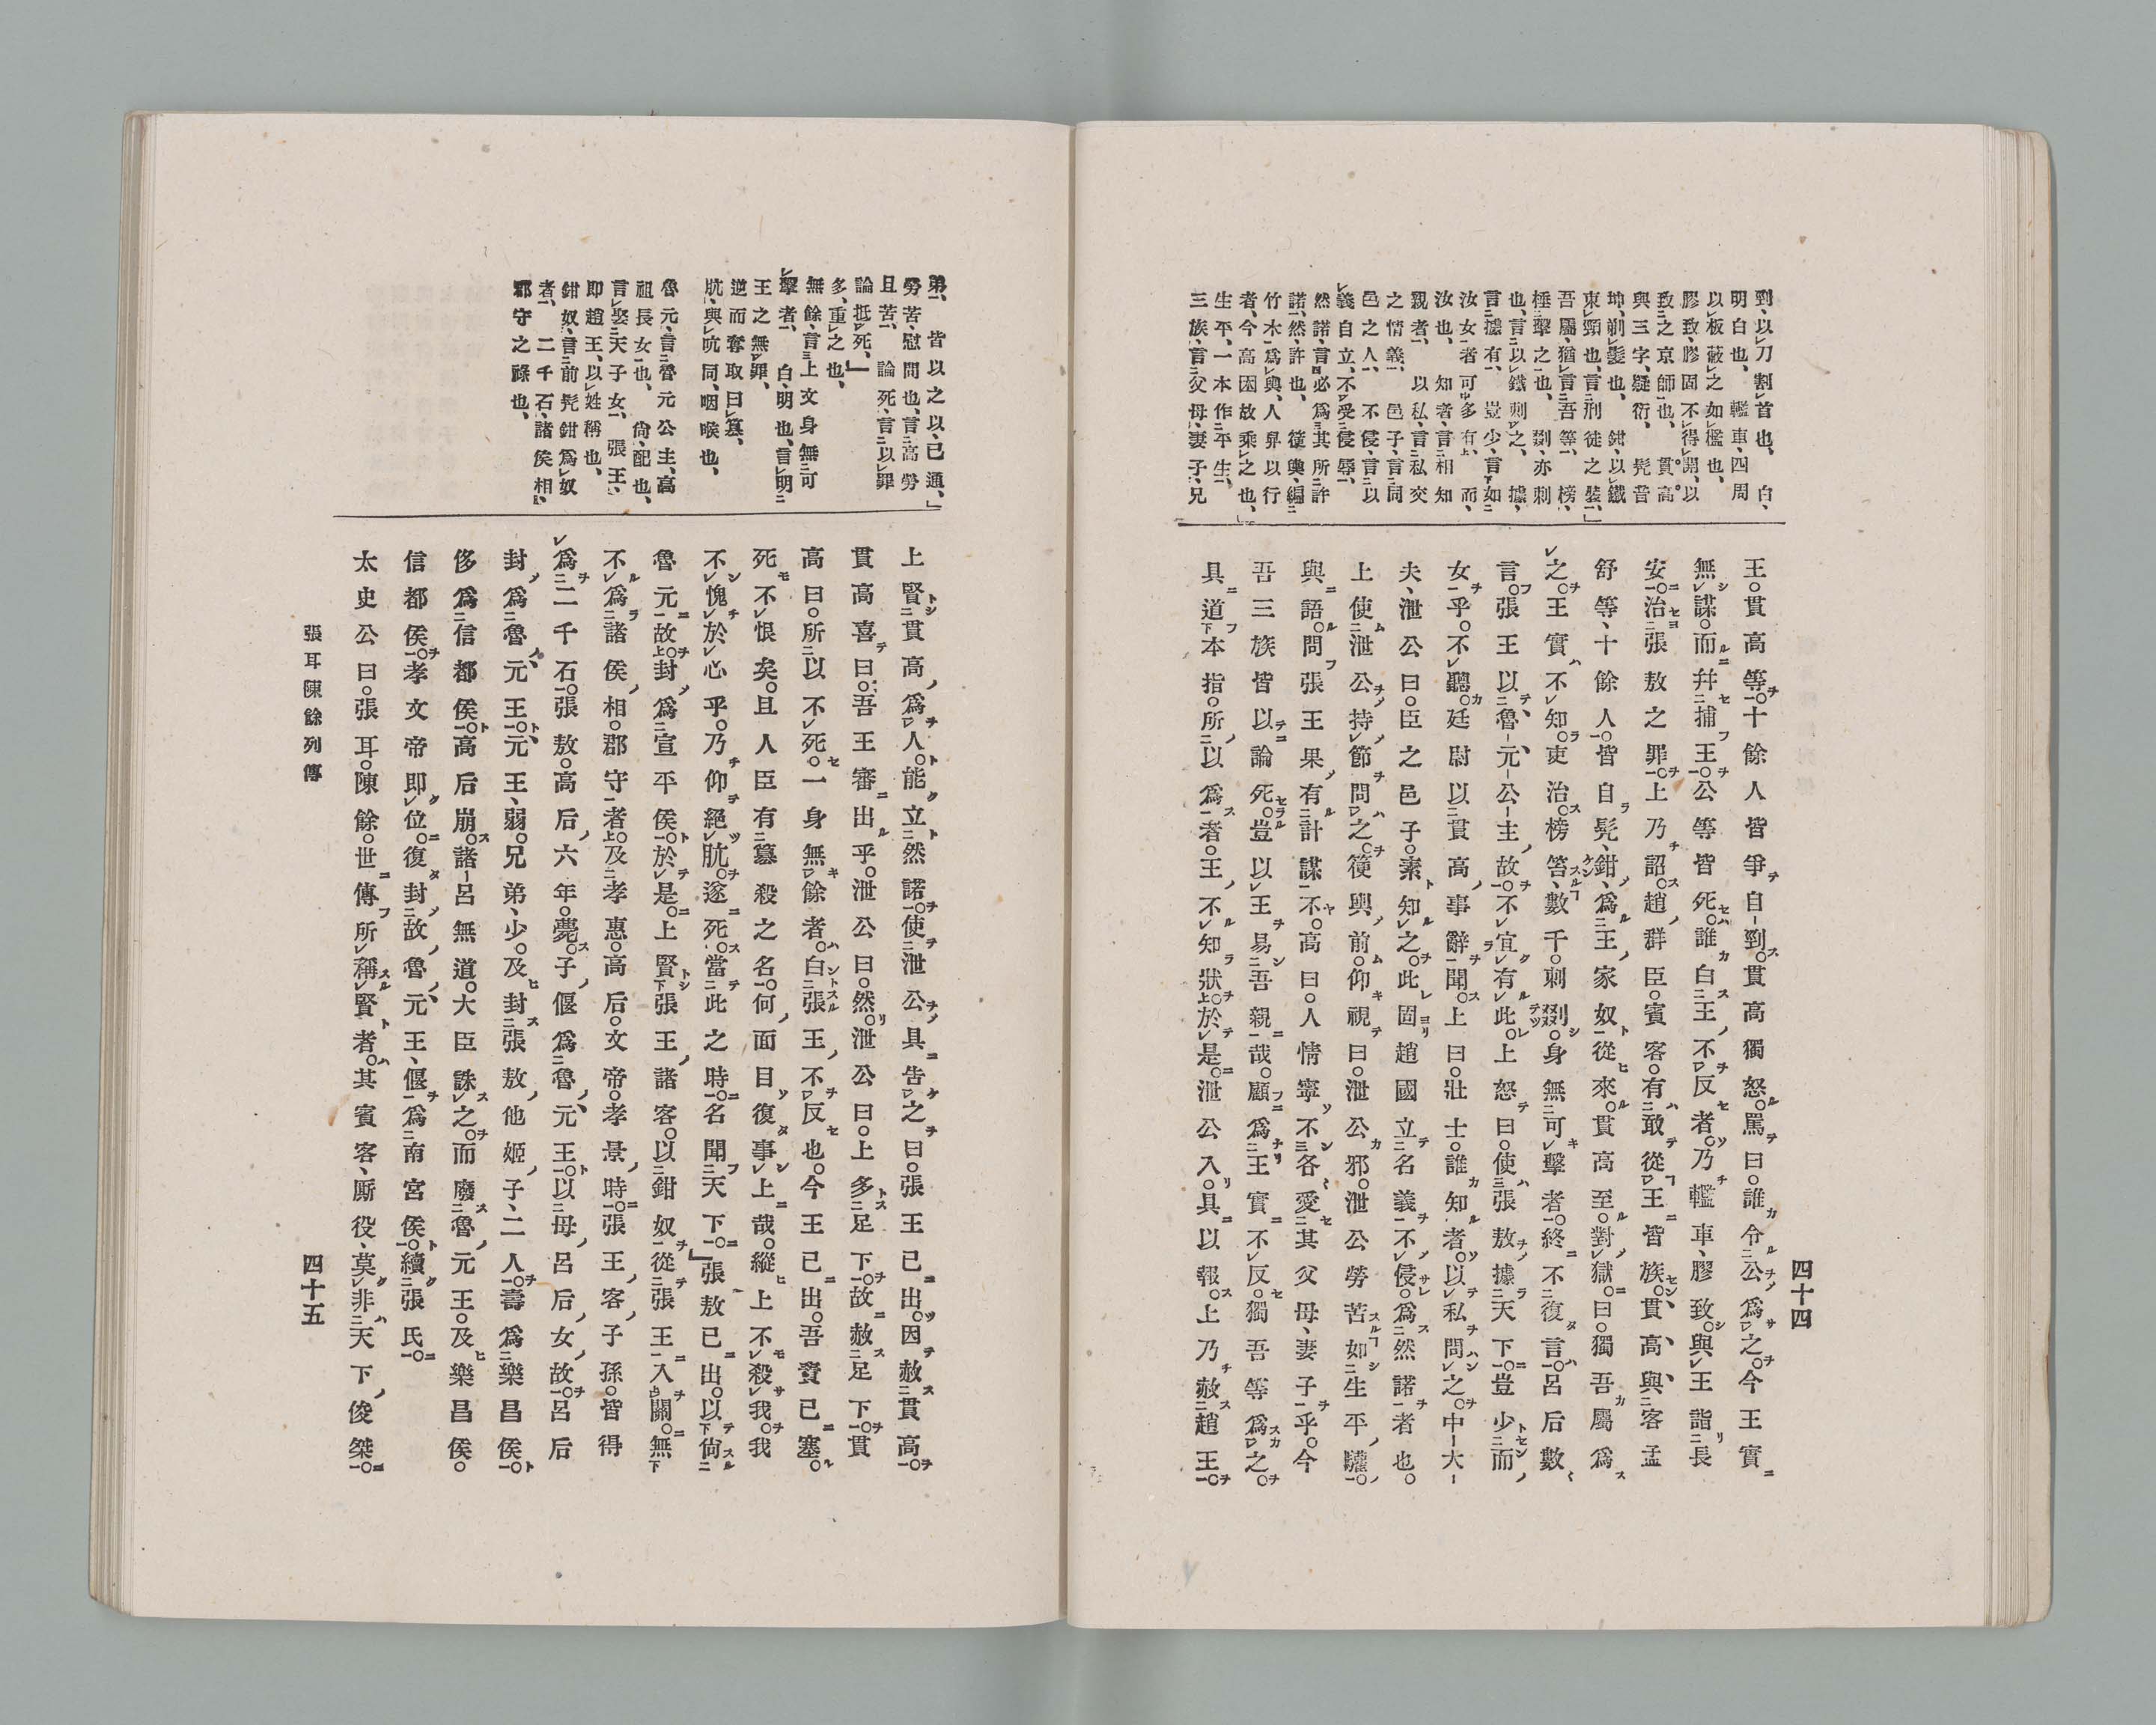 四十四
剄、以刀割首也、　白、
明白也、　轞車、四周
以板蔽之如檻也、
膠致、膠固不得開、以
致之京師也、　貫高
與三字、疑衍、　髡音
坤、剃髮也、　鉗、以鐵
束頸也、言刑徒之裝、」
吾屬、猶言吾等、　榜、
棰擊之也、　剟、亦刺
也、言以鐵刺之、　據、
言據有、　豈少、言如
汝女者可多有、　而、
汝也、　知者、言相知
親者、　以私、言私交
之情義、　邑子、言同
邑之人、　不侵、言以
義自立、不受侵辱、
然諾、言必爲其所許
諾、然、許也、　箯輿、編
竹木爲輿、人舁以行
者、今高困故乘之也、」
生平、一本作平生、
三族、言父母、妻子、兄
王。貫高等。十餘人皆爭自剄。貫高獨怒。罵曰。誰令公爲之。今王實
無謀。而幷捕王。公等皆死。誰白王不反者。乃轞車、膠致。與王詣長
安。治張敖之罪。上乃詔。趙群臣。賓客。有敢從王皆族。貫、高、與、客孟
舒等、十餘人。皆自髡、鉗、爲王家奴從來。貫高至。對獄。曰。獨吾屬爲
之。王實不知。吏治。榜笞、數千。刺剟。身無可擊者。終不復言。呂后數
言。張王以魯、元公主故。不宜有此。上怒曰。使張敖據天下。豈少而
女乎。不聽。廷尉以貫高事辭聞。上曰。壯士。誰知者。以私問之。中大
夫、泄公曰。臣之邑子。素知之。此固趙國立名義不侵。爲然諾者也。
上使泄公持節問之。箯輿前。仰視曰。泄公邪。泄公勞苦如生平驩。
與語。問張王果有計謀不。高曰。人情寧不各愛其父母、妻子乎。今
吾三族皆以論死。豈以王易吾親哉。顧爲王實不反。獨吾等爲之。
具道本指。所以爲者。王不知狀。於是。泄公入。具以報。上乃赦趙王。
弟、　皆以之以、已通、」
勞苦、慰問也、言高勞
且苦、　論死、言以罪
論抵死、」
多、重之也、
無餘、言上文身無可
擊者、　白、明也、言明
王之無罪、
逆而奪取曰簒、
肮、與吭同、咽喉也、
魯元、言魯元公主、高
祖長女也、　尙、配也、
言娶天子女、　張王、
即趙王、以姓稱也、
鉗奴、言前髡鉗爲奴
者、　二千石、諸侯相、
郡守之祿也、
上賢貫高爲人。能立然諾。使泄公具告之曰。張王已出。因赦貫高。
貫高喜曰。吾王審出乎。泄公曰。然。泄公曰。上多足下。故赦足下。貫
高曰。所以不死。一身無餘者。白張王不反也。今王已出。吾責已塞。
死不恨矣。且人臣有簒殺之名。何面目復事上哉。縱上不殺我。我
不愧於心乎。乃仰絕肮。遂死。當此之時。名聞天下。」張敖已出。以尙
魯元故。封爲宣平侯。於是。上賢張王諸客。以鉗奴從張王入關。無
不爲諸侯相。郡守者。及孝惠。高后。文帝。孝景時。張王客子孫。皆得
爲二千石。張敖。高后六年。薨。子偃爲魯、元王。以母呂后女故。呂后
封爲魯元、王。元、王、弱。兄弟、少。及封張敖他姬子、二人。壽爲樂昌侯。
侈爲信都侯。高后崩。諸呂無道。大臣誅之。而廢魯元王。及樂昌侯。
信都侯。孝文帝即位。復封故魯、元王、偃爲南宮侯。續張氏。
太史公曰。張耳。陳餘。世傳所稱賢者。其賓客、厮役、莫非天下俊桀。
張耳陳餘列傳
四十五